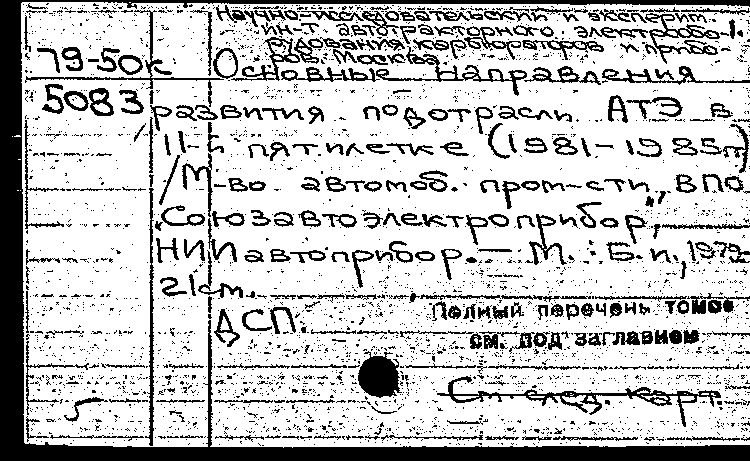 Научно-исследовательский и эксперим.
ин-т автотракторного электрообо- 1.
рудования, карбюраторов и прибо-
ров. Москва.
79-50к Основные направления
5083 развития подотрасли АТЭ в
11-й пятилетке (1981-1985гг)
/М-во автомоб. пром-сти, ВПО
"Союзавтоэлектроприбор",
НИИавтоприбор. — М. : Б. и., 1979-
21 см.
ДСП.
Полный перечень томов
см. под заглавием
См. след. карт.